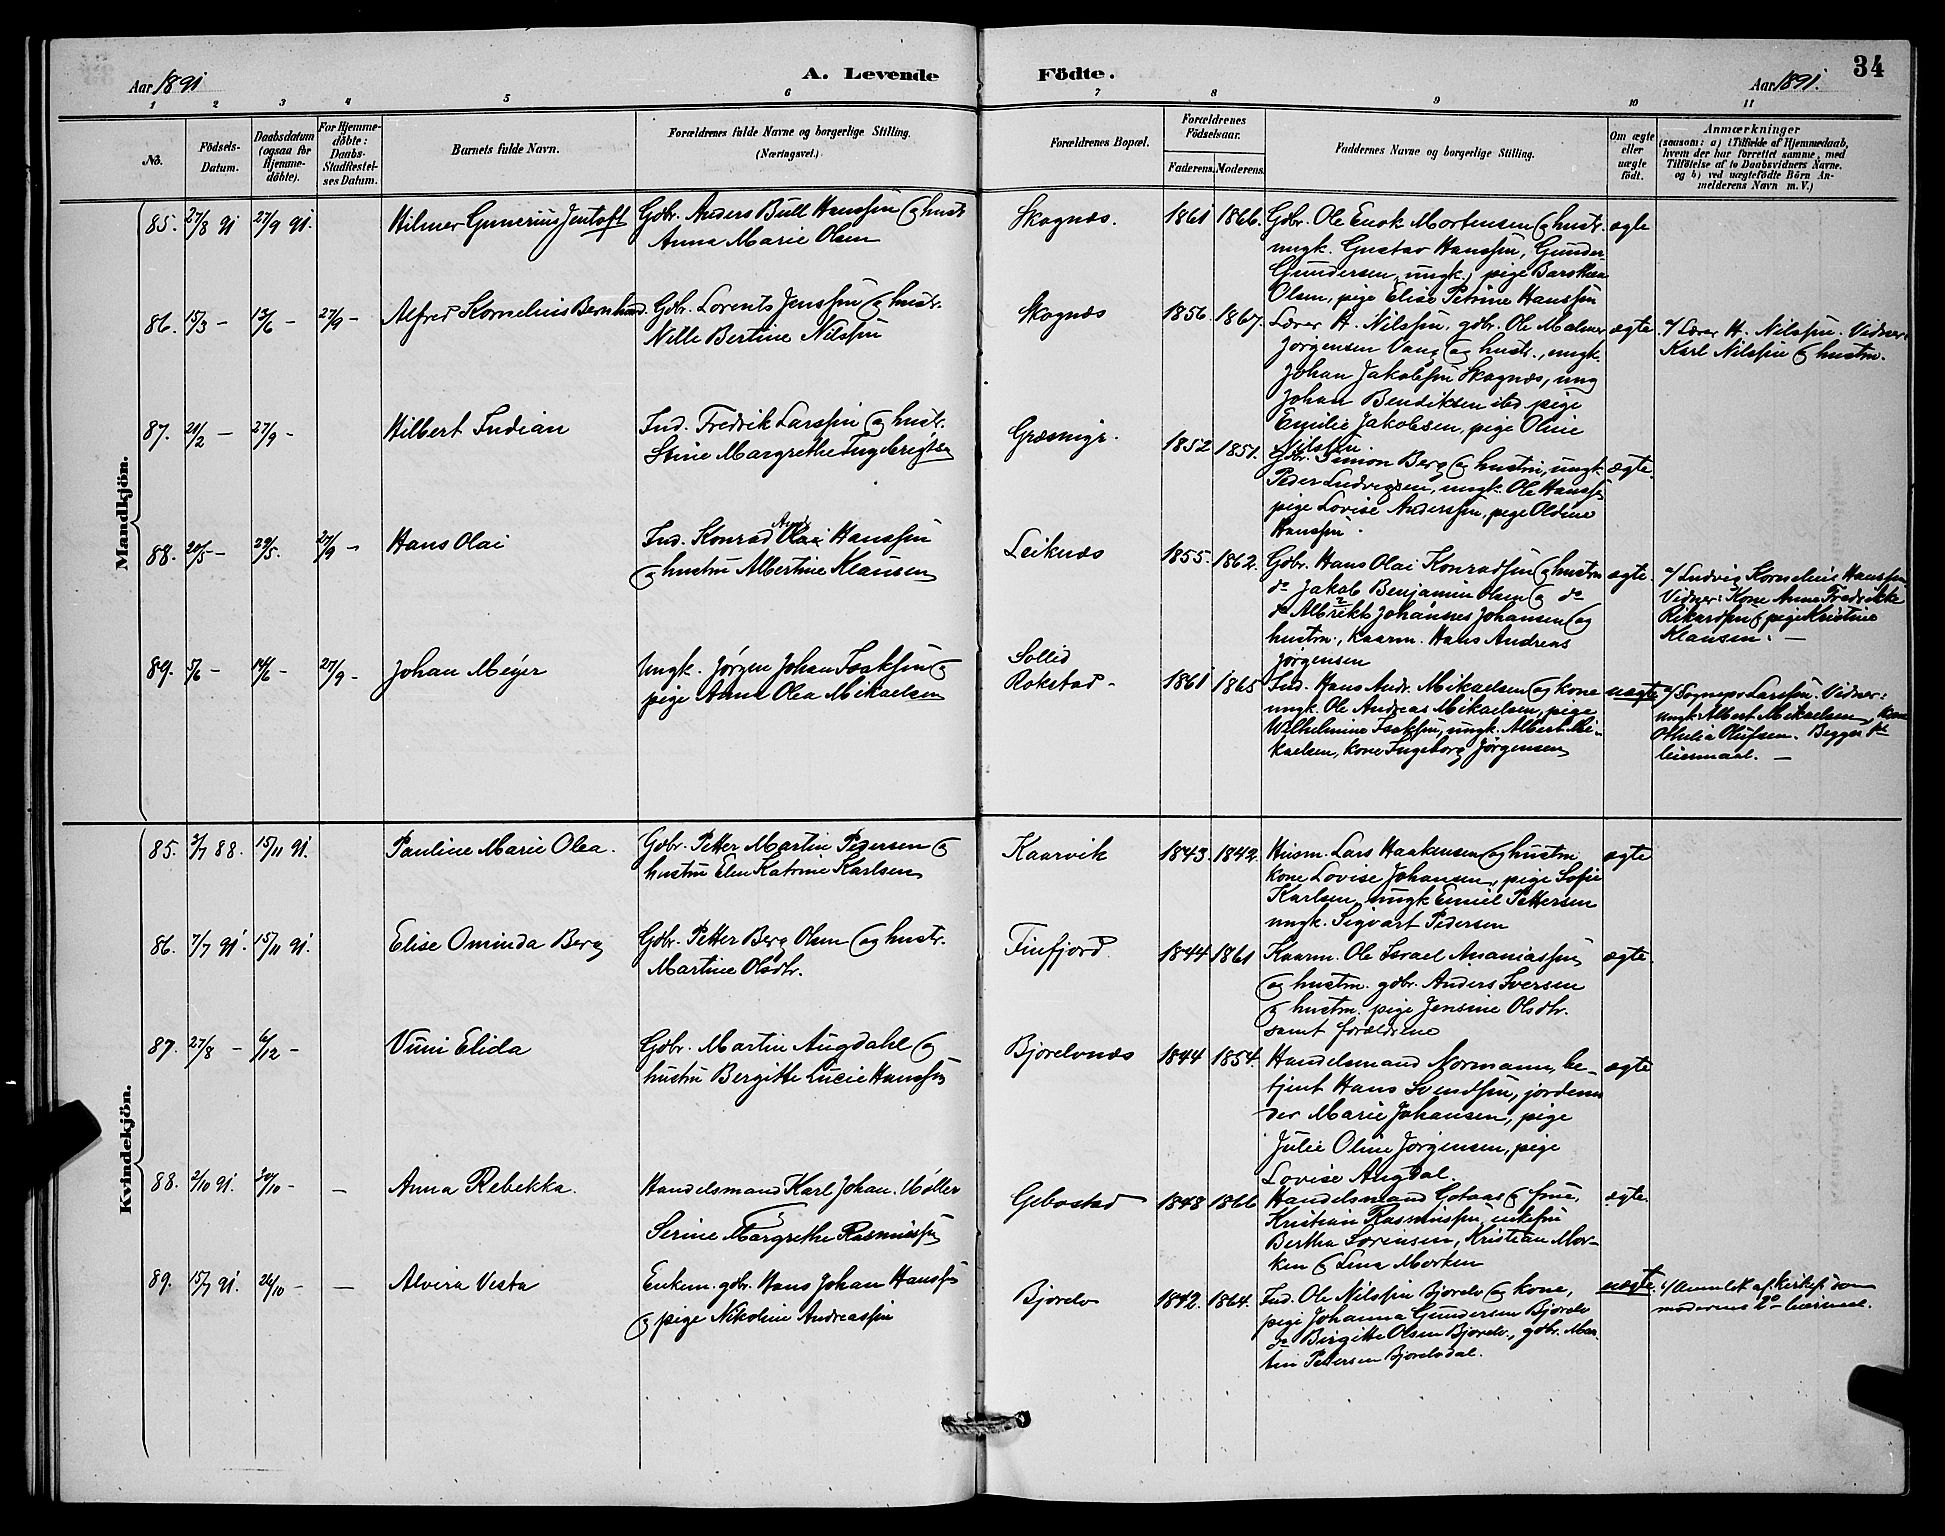 Aar 1891
A. Levende Födte.
Aar 1891.
34
1 2 3 4 5 6 7 8 9 10 11
No.
Födsels-
Datum.
Daabsdatum
(ogsaa for
Hjemme-
döbte).
For Hjemme-
döbte:
Daabs-
Stadfæstel-
ses Datum.
Barnets fulde Navn.
Forældrenes fulde Navne og borgerlige Stilling.
(Næringsvei.)
Forældrenes Bopæl.
Forældrenes
Födselsaar.
Faderens. Moderens.
Faddernes Navne og borgerlige Stilling.
Om ægte
eller
uægte
födt.
Anmærkninger
(saasom: a) i Tilfælde af Hjemmedaab,
hvem der har forrettet samme, med
Tilföielse af to Daabsvidners Navne.
og b) ved uægtefödte Börn An-
melderens Navn m. V.)
Mandkjön.
85. 27/8 91 27/9 91.
Hilmer Gunerius Jentoft
Gdbr. Anders Bull Hanssen og hustr
Anna Marie Olsen
Skognæs.
1861 1866.
Gdbr. Ole Enok Mortensen og hustr.
ungk. Gustav Hanssen, Gunder
Gundersen, ungk., pige
Olsen, pige Elise Petrine Hanssen
ægte
86. 15/3 - 13/6 - 27/9 -
Alfred Kornelius Bernhard
Gdbr. Lorents Jenssen og hustr.
Nelle Bertine Nilssen
Skognæs
1856 1867.
Lærer H. Nilssen, gdbr. Ole
Jörgensen Vang og hustr., ungk.
Johan Jakobsen Skognæs, ung
Johan Bendiksen ibd. pige
Emilie Jakobsen, pige Oline
Nilssen
ægte
v/ Lærer H. Nilssen. Vidner:
Karl Nilssen og hustru.
87. 21/2 - 27/9 -
Hilbert Indian
Ind. Fredrik Larssen og hustr.
Stine Margrethe Ingebrigtsen
Græsmyr.
1852 1851.
Gdbr. Simon Berg og hustru, ungk.
Peder Ludvigsen, ungk. Ole Hanss.
pige Lovise Anderssen, pige Oldine
Hanssen.
ægte.
88. 20/5 - 29/5. 27/9 -
Hans Olai
Ind. Konrad Olai Hanssen
og hustru Albertine Klausen
Leiknæs
1855. 1862.
Gdbr. Hans Olai Konradsen og hustru
do Jakob Benjamin Olsen og do
do Albrikt Johannes Johansen og
hustru, kaarm. Hans Andreas
Jörgensen
ægte.
v/ Ludvig Kornelius Hanssen
Vidner: Kone Anne Fredrikke
Rikardsen og pige Kristine
Klausen. -
89. 5/6 - 14/6 - 27/9 -
Johan Meyer
Ungk. Jörgen Johan Isaksen og
pige Anne Olea Mikaelsen
Sollid
Rokstad -
1861 1865
Ind. Hans Andr. Mikaelsen og kone
ungk. Ole Andreas Mikaelsen, pige
Wilhelmine Isaksen, ungk. Albert Mi-
kaelsen, kone Ingeborg Jörgensen
uægte
v/ Sognepr. Larssen. Vidner:
ungk. Albert Mikaelsen, kone
Othelia Olufsen. Begges 1ste
leiermaal. -
Kvindekjön.
85. 7/7 88. 15/11 91.
Pauline Marie Olea.
Gdbr. Petter Martin Pedersen og
hustru Elen Katrine Karlsen
Kaarvik
1843. 1842.
Husm. Lars Haakensen og hustru
kone Lovise Johansen, pige Sofie
Karlsen, ungk Emiel Pettersen
ungk. Sigvart Pedersen
ægte
86. 7/7 91. 15/11 91.
Elise Ominda Berg
Gdbr. Petter Berg Olsen og hustr.
Martine Olsdtr.
Finfjord.
1844 1861
Kaarm. Ole Israel Ananiassen
og hustru. gdbr. Anders Iversen
og hustru. pige Jensine Olsdtr.
samt forældrene
ægte.
87. 27/8 - 6/12 -
Vuni Elida
Gdbr. Martin Augdahl og
hustru Bergitte Lucie Hanssen
Bjorelvnæs
1844 1854.
Handelsmand Normann, be-
tjent Hans Svendsen, jordem
der Marie Johansen, pige
Julie Oline Jörgensen, pige
Lovise Augdal.
ægte
88. 2/10 91. 20/10 - -
Anna Rebekka.
Handelsmand Karl Johan Möller
og
Serine Margrethe Rasmussen
Gebostad
1848 1866
Handelsmand Gotaas og frue,
Kristian Rasmussen, enkefru
Bertha Sörensen, Kristian Mor-
ken og Lina Morken
ægte.
89. 15/7 91. 26/10 - -
Alvira Vesta
Enkem. gdbr. Hans Johan Hanss
og pige Nikoline Andreassen
Bjorelv
1842. 1864.
Ind. Ole Nilssen Bjorelv og kone,
pige Johanna Gundersen Bjorelv
do Birgitte Olsen Bjorelv, gdbr. Mar
tin Petersen Bjorelvdal.
uægte.
v/ Anmeldt af kirkes. som
moderens 2det leierm.